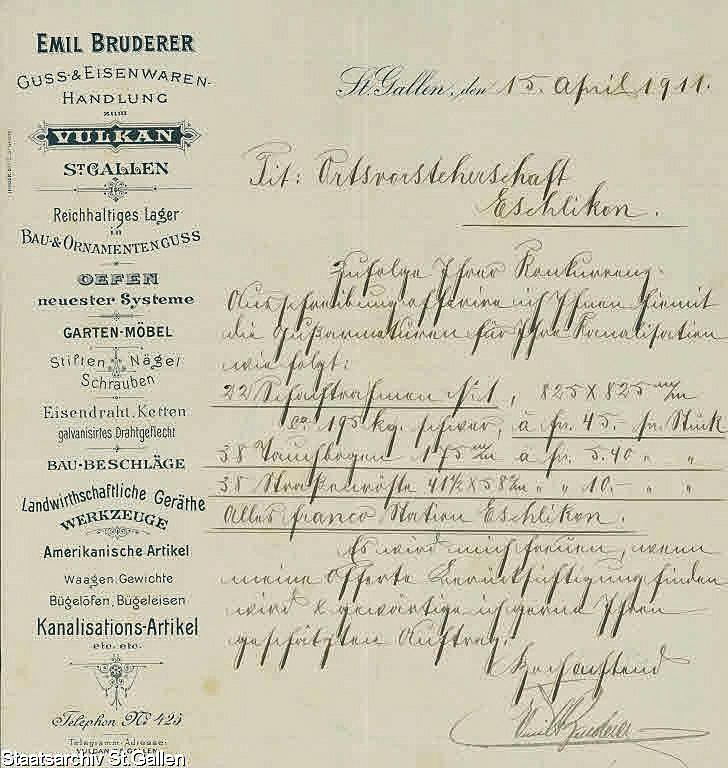 EMIL BRUDERER
GUSS- & EISENWAREN-
HANDLUNG
ZUM
VULKAN
ST GALLEN
Reichhaltiges Lager
in
BAU- & ORNAMENTENGUSS
OEFEN
neuester Systeme
GARTEN-MÖBEL
Stiften Nägel
Schrauben
Eisendraht, Ketten
galvanisirtes Drahtgeflecht
BAU-BESCHLÄGE
Landwirthschaftliche Geräthe
WERKZEUGE
Amerikanische Artikel
Waagen, Gewichte
Bügelöfen, Bügeleisen
Kanalisations-Artikel
etc. etc.
Telephon No 425
Telegramm-Adresse:
VULKAN ST. GALLEN
St. Gallen, den 15. April 1911.
Tit: Ortsvorsteherschaft
Eschlikon.
Zufolge Ihrer Konkurrenz-
Ausschreibung offerire ich Ihnen hiemit
die Gußarmaturen für Ihre Kanalisation
wie folgt:
22 Schachtrahmen No 1, 825 X 825 m/m
ca. 195 kg. schwer, à fr. 45. pr. Stück
38 Tauchbogen 175 m/m à fr. 5.40 " "
38 Straßenröste 41½ X 58 c/m " " 10.- " "
Alles franco Station Eschlikon.
Es wird mich freuen, wenn
meine Offerte Berücksichtigung finden
wird & gewärtige ich gerne Ihren
geschätzten Auftrag.
Hochachtend
Emil Bruderer
Staatsarchiv St.Gallen